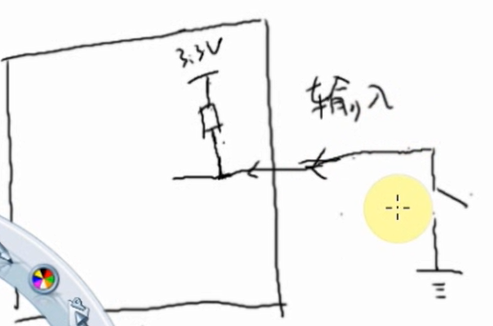 3.3V
输入